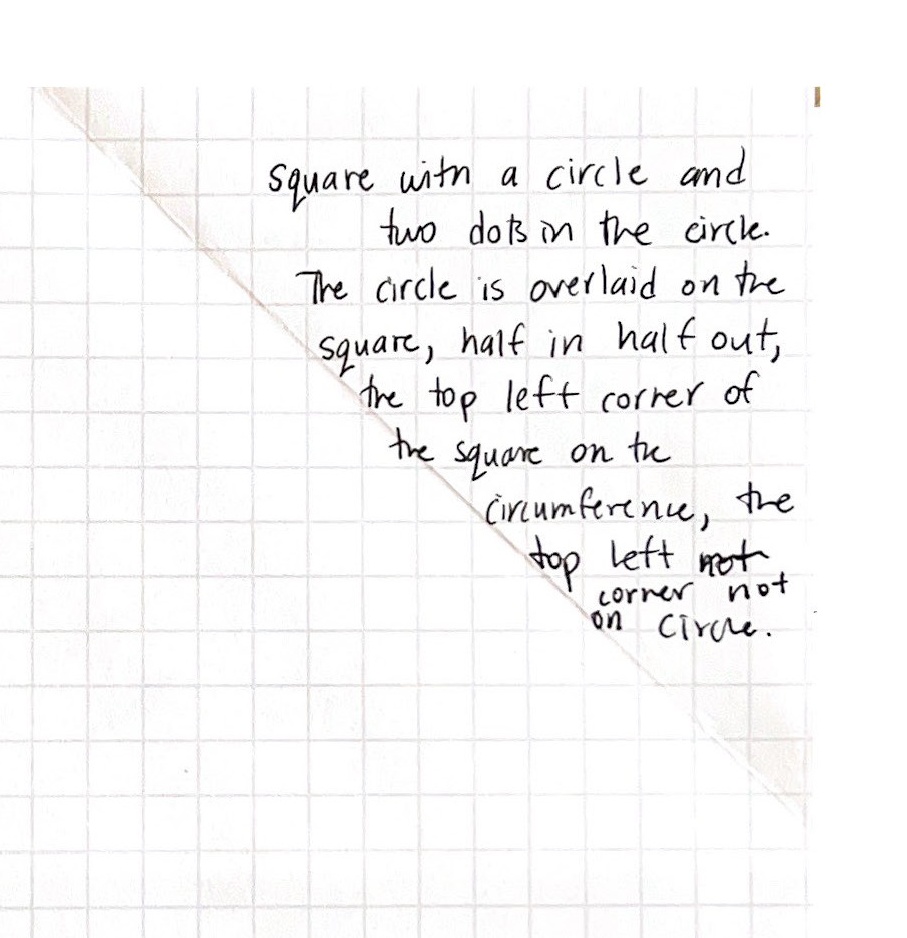 square with a circle and
two dots in the circle.
The circle is overlaid on the
square, half in half out,
the top left corner of
the square on the
circumference, the
top left not
corner not
on circle.